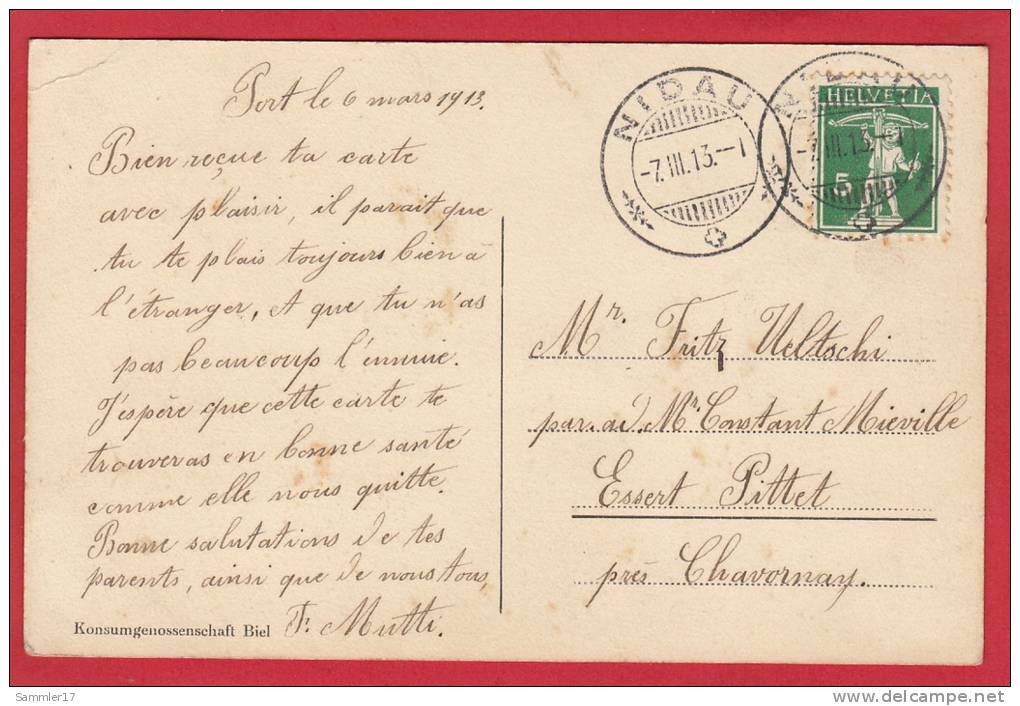 Port le 6 mars 1913.
Bien reçue ta carte
avec plaisir, il parait que
tu te plais toujours bien à
l'étranger, et que tu n'as
pas beaucoup l'ennuie.
J'espère que cette carte te
trouveras en bonne santé
comme elle nous quitte.
Bonne salutations de tes
parents, ainsi que de nous tous,
F. Mutti.
Konsumgenossenschaft Biel
NIDAU
-7.III.13.-1
NIDAU
-7.III.13.-1
HELVETIA
5
Mr. Fritz Ueltschi
par. ad. Mr. Constant Miéville
Essert Pittet
près Chavornay.
Sammler17
www.delcampe.net